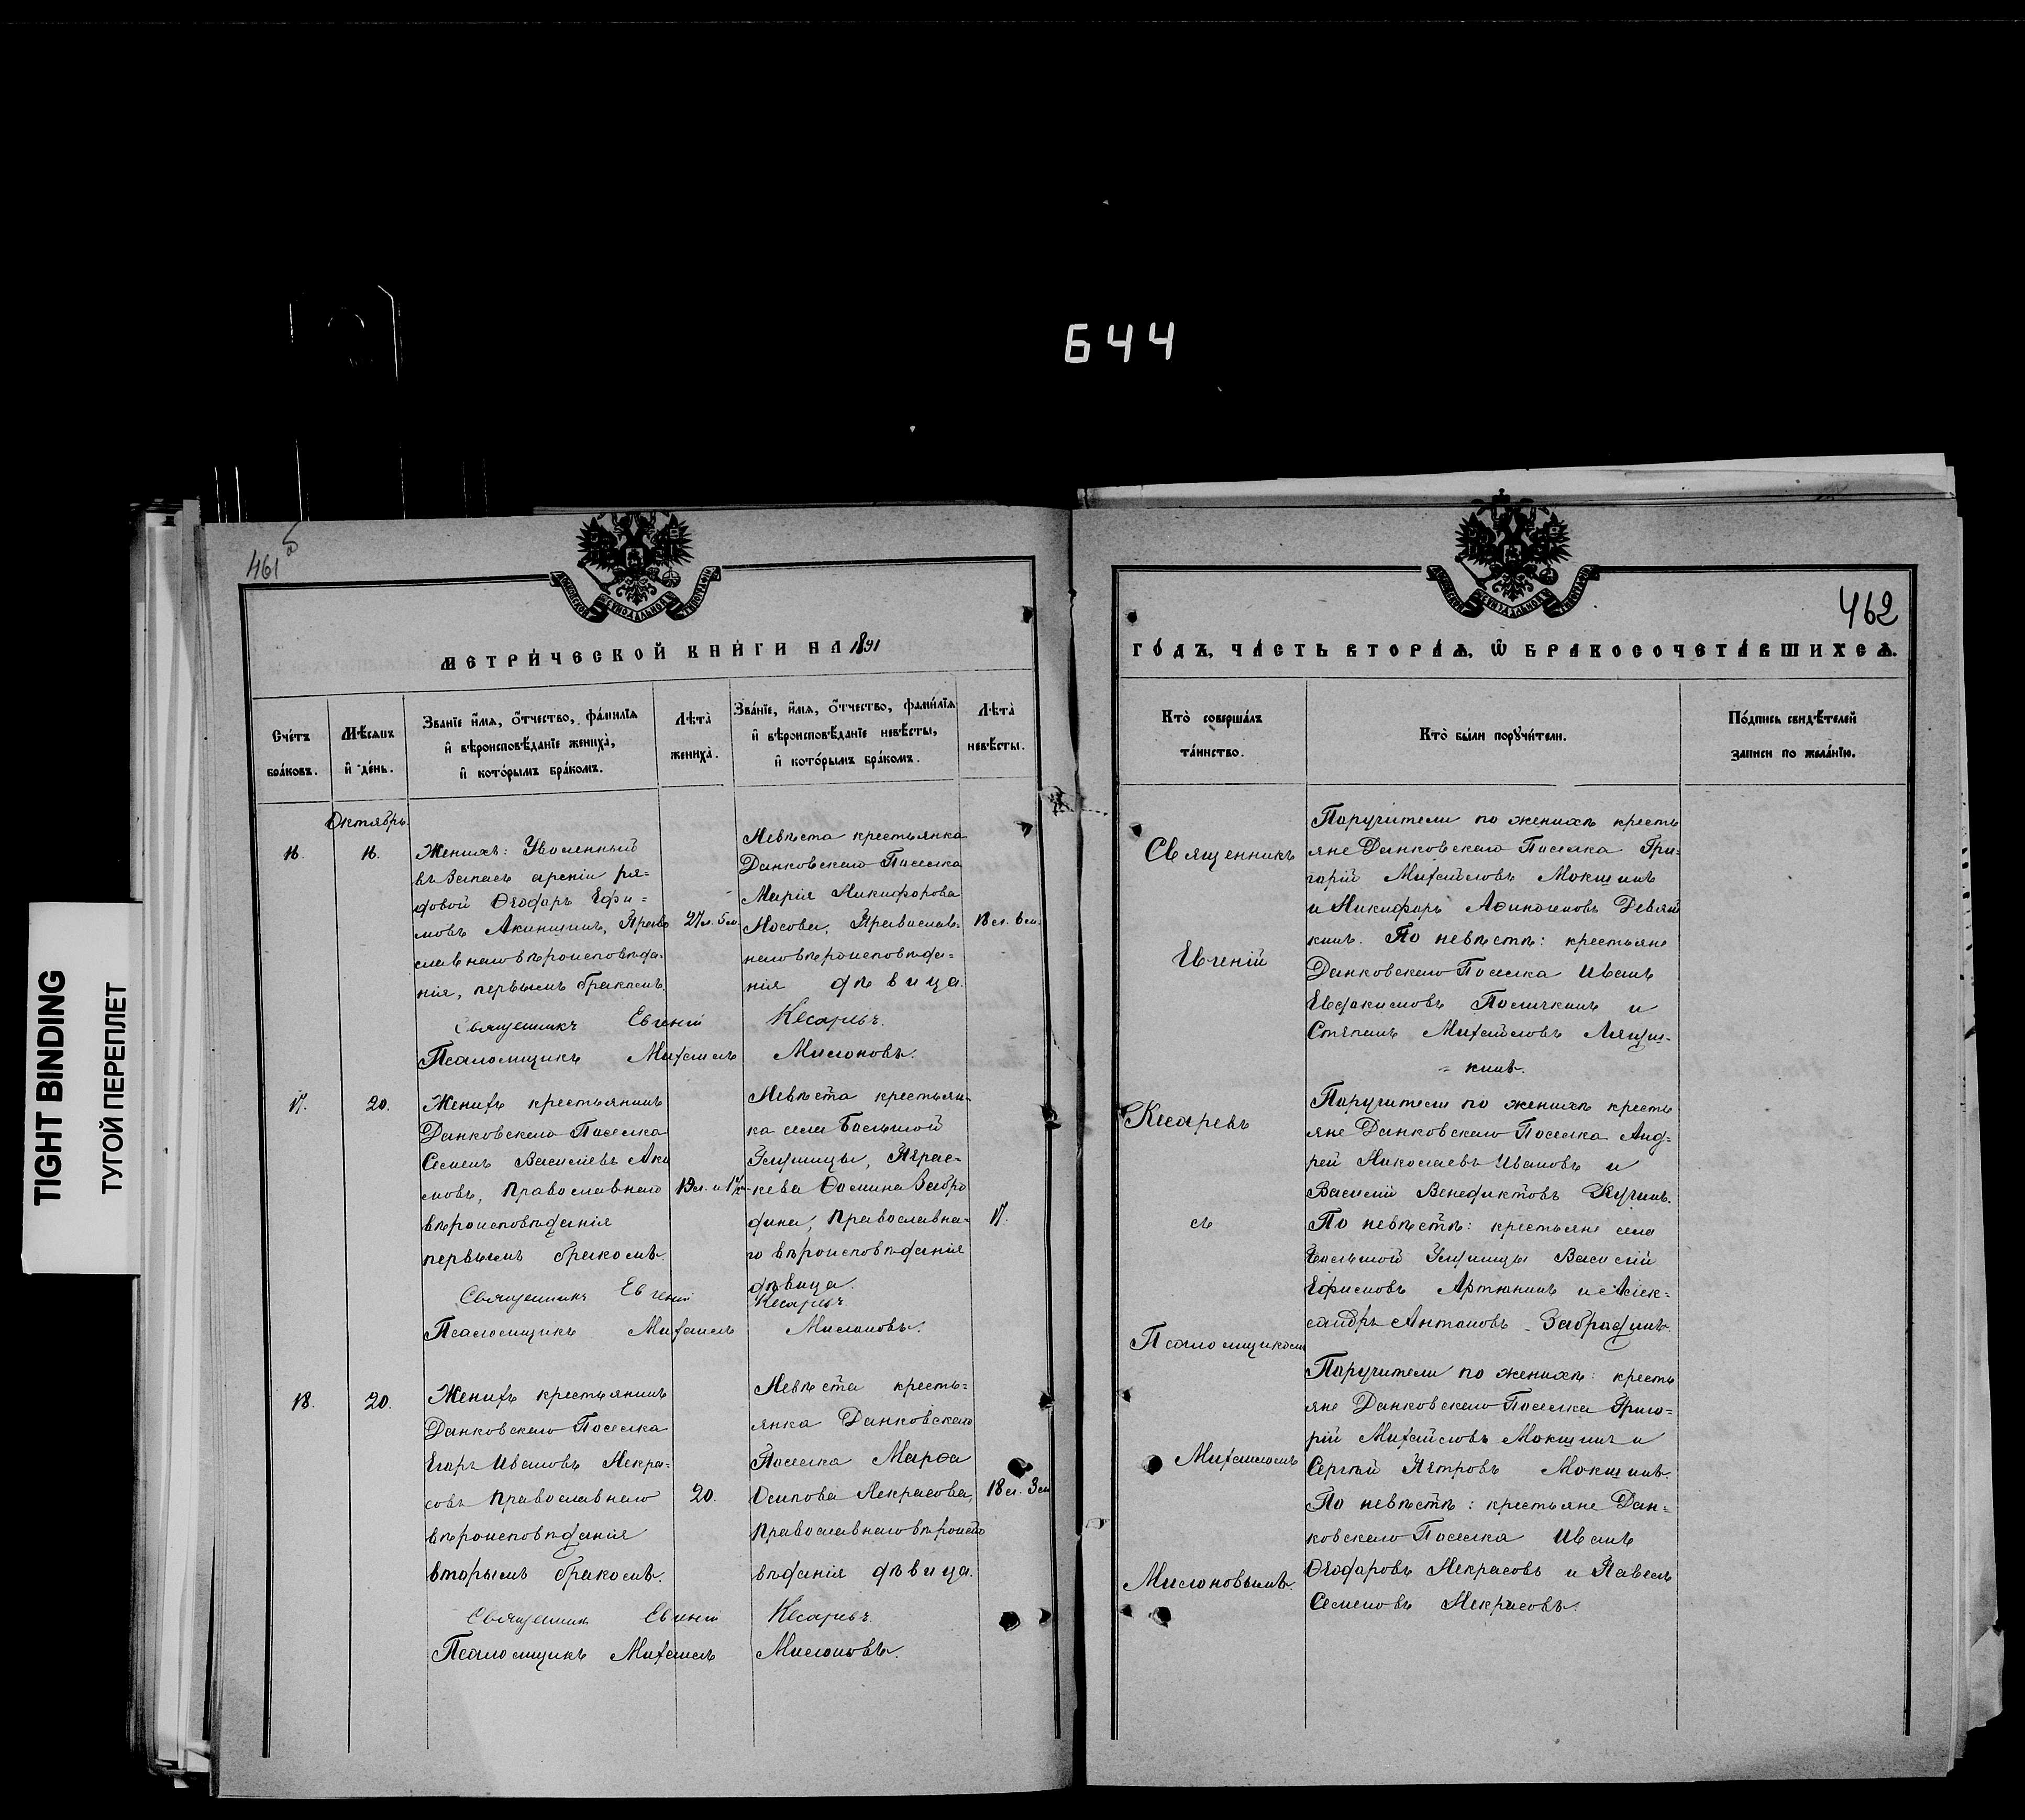 644
TIGHT BINDING
ТУГОЙ ПЕРЕПЛЕТ
461
МЕТРИ́ЧЕСКОЙ КНИ́ГИ НА 1891
Сче́тъ бра́ковъ.
Мѣ́сяцъ и҆ де́нь.
Зва́нїе и҆́мѧ, ѻ҆́тчество, фами́лїѧ
и҆ вѣроисповѣ́данїе жениха̀,
и҆ кото́рымъ бра́комъ.
Лѣта̀ жениха̀.
Зва́нїе, и҆́мѧ, ѻ҆́тчество, фами́лїѧ
и҆ вѣроисповѣ́данїе невѣ́сты,
и҆ кото́рымъ бра́комъ.
Лѣта̀ невѣ́сты.
Октябрь.
16.
16.
Женихъ: Уволенный
въ запасъ арміи ря=
довой Ѳеодоръ Ефи=
мовъ Акиншинъ, Право
славнаго вѣроисповѣда-
нія, первымъ бракомъ
27 л. 5 м.
Невѣста крестьянка
Данковскаго Поселка
Марія Никифорова
Носова, Православ-
наго вѣроисповѣда=
нія дѣвица.
18 л. 6 м.
Священникъ Евгеній Кесаревъ.
Псаломщикъ Михаилъ Милоновъ.
17.
20.
Женихъ крестьянинъ
Данковскаго Поселка
Семенъ Василіевъ Аки
мовъ, Православнаго
вѣроисповѣданія
первымъ бракомъ.
19 л. и
Невѣста крестьян-
ка села Большой
Параc-
кева Ѳомина Забро
дина, Православна-
го вѣроисповѣданія
дѣвица.
17.
Священникъ Евгеній Кесаревъ
Псаломщикъ Михаилъ Милоновъ.
18.
20.
Женихъ крестьянинъ
Данковскаго Поселка
Егоръ Ивановъ Некра-
совъ Православнаго
вѣроисповѣданія
вторымъ бракомъ.
20.
Невѣста кресть=
янка Данковскаго
Поселка Марѳа
Осипова Некрасова,
Православнаго вѣроиспо
вѣданія дѣвица.
18 л. 3 м
Священникъ Евгеній Кесаревъ.
Псаломщикъ Михаилъ Милоновъ.
462
ГО́ДЪ, ЧА́СТЬ ВТОРА́Ѧ, Ѡ҆ БРАКОСОЧЕТА́ВШИХСѦ.
Кто̀ соверша́лъ та́инство.
Кто̀ бы́ли порꙋчи́тели.
По́дпись свидѣ́телей
за́писи по жела́нїю.
Священникъ
Евгеній
Кесаревъ
съ
Псаломщикомъ
Михаиломъ
Милоновымъ.
Поручители по женихѣ кресть
яне Данковскаго Поселка Гри=
горій Михайловъ Мокшинъ
и Никифоръ Девят
кинъ. По невѣстѣ: крестьяне
Данковскаго Поселка Иванъ
Евдокимовъ и
Степанъ Михайловъ
= кинъ.
Поручители по женихѣ кресть
яне Данковскаго Поселка Анд=
рей Николаевъ Ивановъ и
Василій Венедиктовъ
По невѣстѣ: крестьяне села
Большой Василій
Ефимовъ Артюнинъ и Алек=
сандръ Антоновъ Забродинъ.
Поручители по женихѣ: кресть
яне Данковскаго Поселка Григо=
рій Михайловъ Мокшинъ и
Сергѣй Петровъ Мокшинъ.
По невѣстѣ: крестьяне Дан=
ковскаго Поселка Иванъ
Ѳеодоровъ Некрасовъ и Павелъ
Семеновъ Некрасовъ.